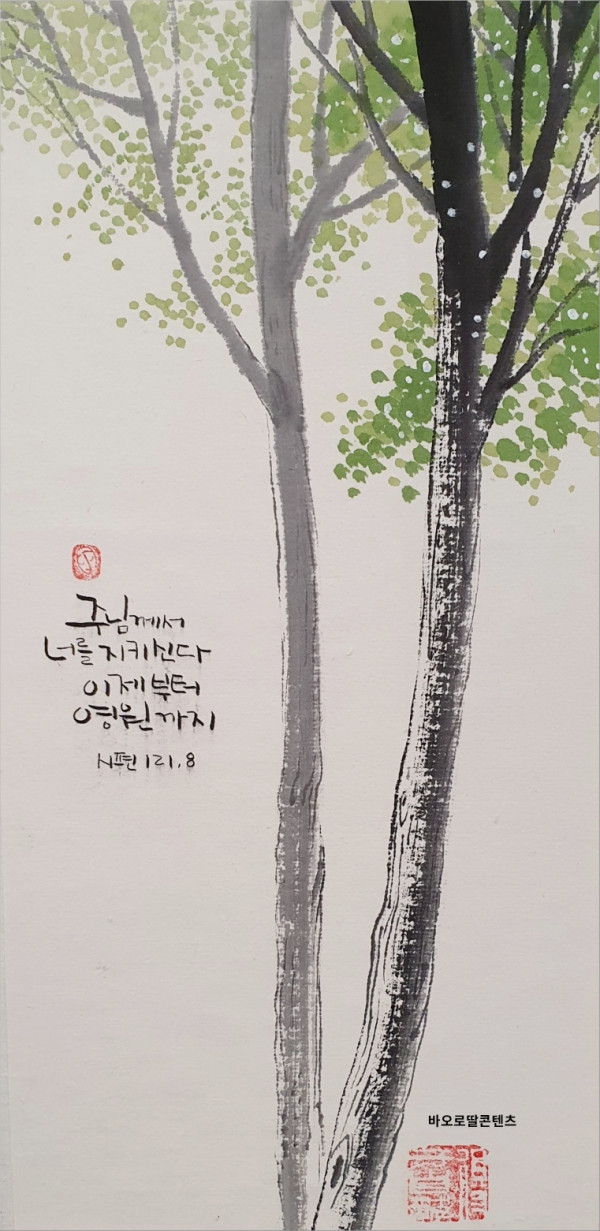 주님께서
너를 지키신다
이제부터
영원까지
시편 121.8
바오로딸콘텐츠